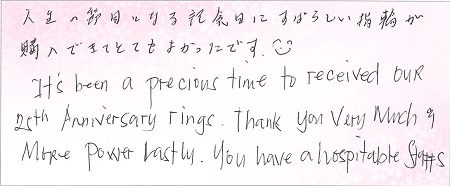 人生の節目となる記念日にすばらしい指輪が
購入できてとてもよかったです。
It's been a precious time to received our
25th Anniversary rings. Thank you Very Much &
More Power Lastly. You have a hospitable Staffs